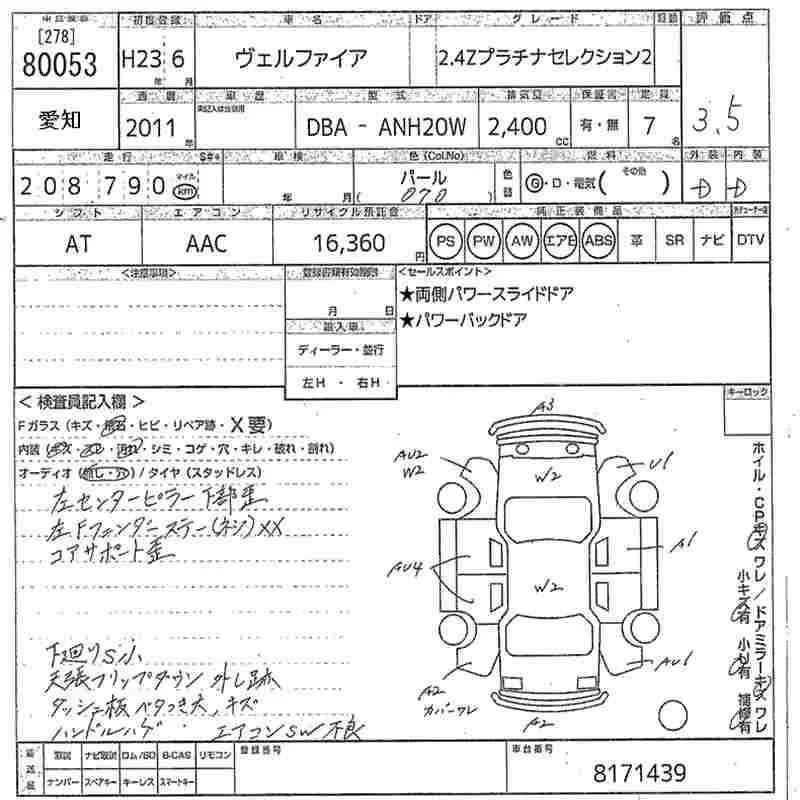 [278] 初度登録 車名 ドア グレード 評価点
80053 H23 6 ヴェルファイア 2.4Zプラチナセレクション2
年 月
愛知 車歴 型式 排気量 保証書 定員 3.5
2011年 DBA - ANH20W 2,400cc 有・無 7名
走行 車検 色(Col.No) 燃料 外装 内装
208790 マイル km 年 月 パール (070) 色替 G・D・電気 (その他) D D
シフト エアコン リサイクル預託金 純正装備品
AT AAC 16,360円 PS PW AW エアB ABS 革 SR ナビ DTV
<注意事項> 登録書類有効期限 <セールスポイント>
★両側パワースライドドア
月 日 ★パワーバックドア
輸入車
ディーラー・並行
左H・右H
<検査員記入欄> キーロック
Fガラス(キズ・飛石・ヒビ・リペア跡・X要)
内装(キズ・汚れ・シミ・コゲ・穴・キレ・破れ・割れ)
オーディオ(無し・穴)/タイヤ(スタッドレス)
左センターピラー下部歪
左Fフェンダーステー(ネジ)XX
コアサポート歪
下廻りS小
天張フリップダウン外し跡
ダッシュ板ベタつき大、キズ
ハンドルハゲ エアコンSW不良
A3
AU2
W2
W2
U1
A1
AU4
W2
AU1
A2
カバーワレ
A2
ホイル・CPキズワレ/ドアミラーキズワレ
小キズ有 小U有 補修有
取説 ナビ取説 ロム/SD B-CAS リモコン 登録番号 車台番号
ナンバー スペアキー キーレス スマートキー 8171439